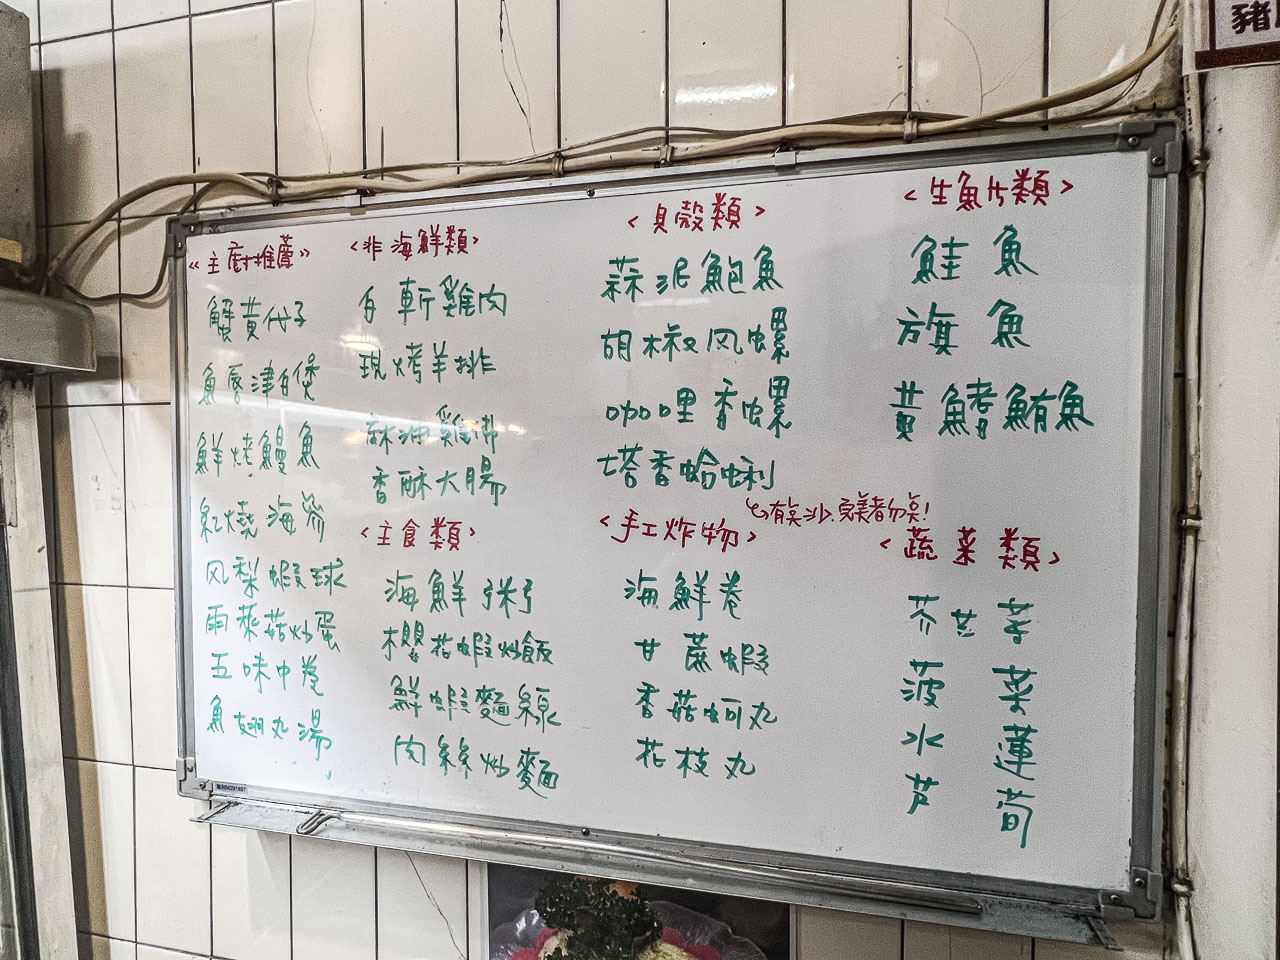 豬
《主廚推薦》
蟹黃代子
魚唇津白煲
鮮烤鰻魚
紅燒海參
风梨蝦球
雨菜菇炒蛋
五味中卷
魚翅丸湯
<非海鮮類>
白斬雞肉
現烤羊排
麻油雞
香酥大腸
<主食類>
海鮮粥
櫻花蝦炒飯
鮮蝦麵線
肉絲炒麵
<貝殼類>
蒜泥鮑魚
胡椒风螺
咖哩香螺
塔香蛤蜊
有真沙.完美者勿点!
<手工炸物>
海鮮卷
甘蔗蝦
香菇蚵丸
花枝丸
<生魚片類>
鮭魚
旗魚
黃鰭鮪魚
<蔬菜類>
芥芸等
菠菜
水蓮
芦荀